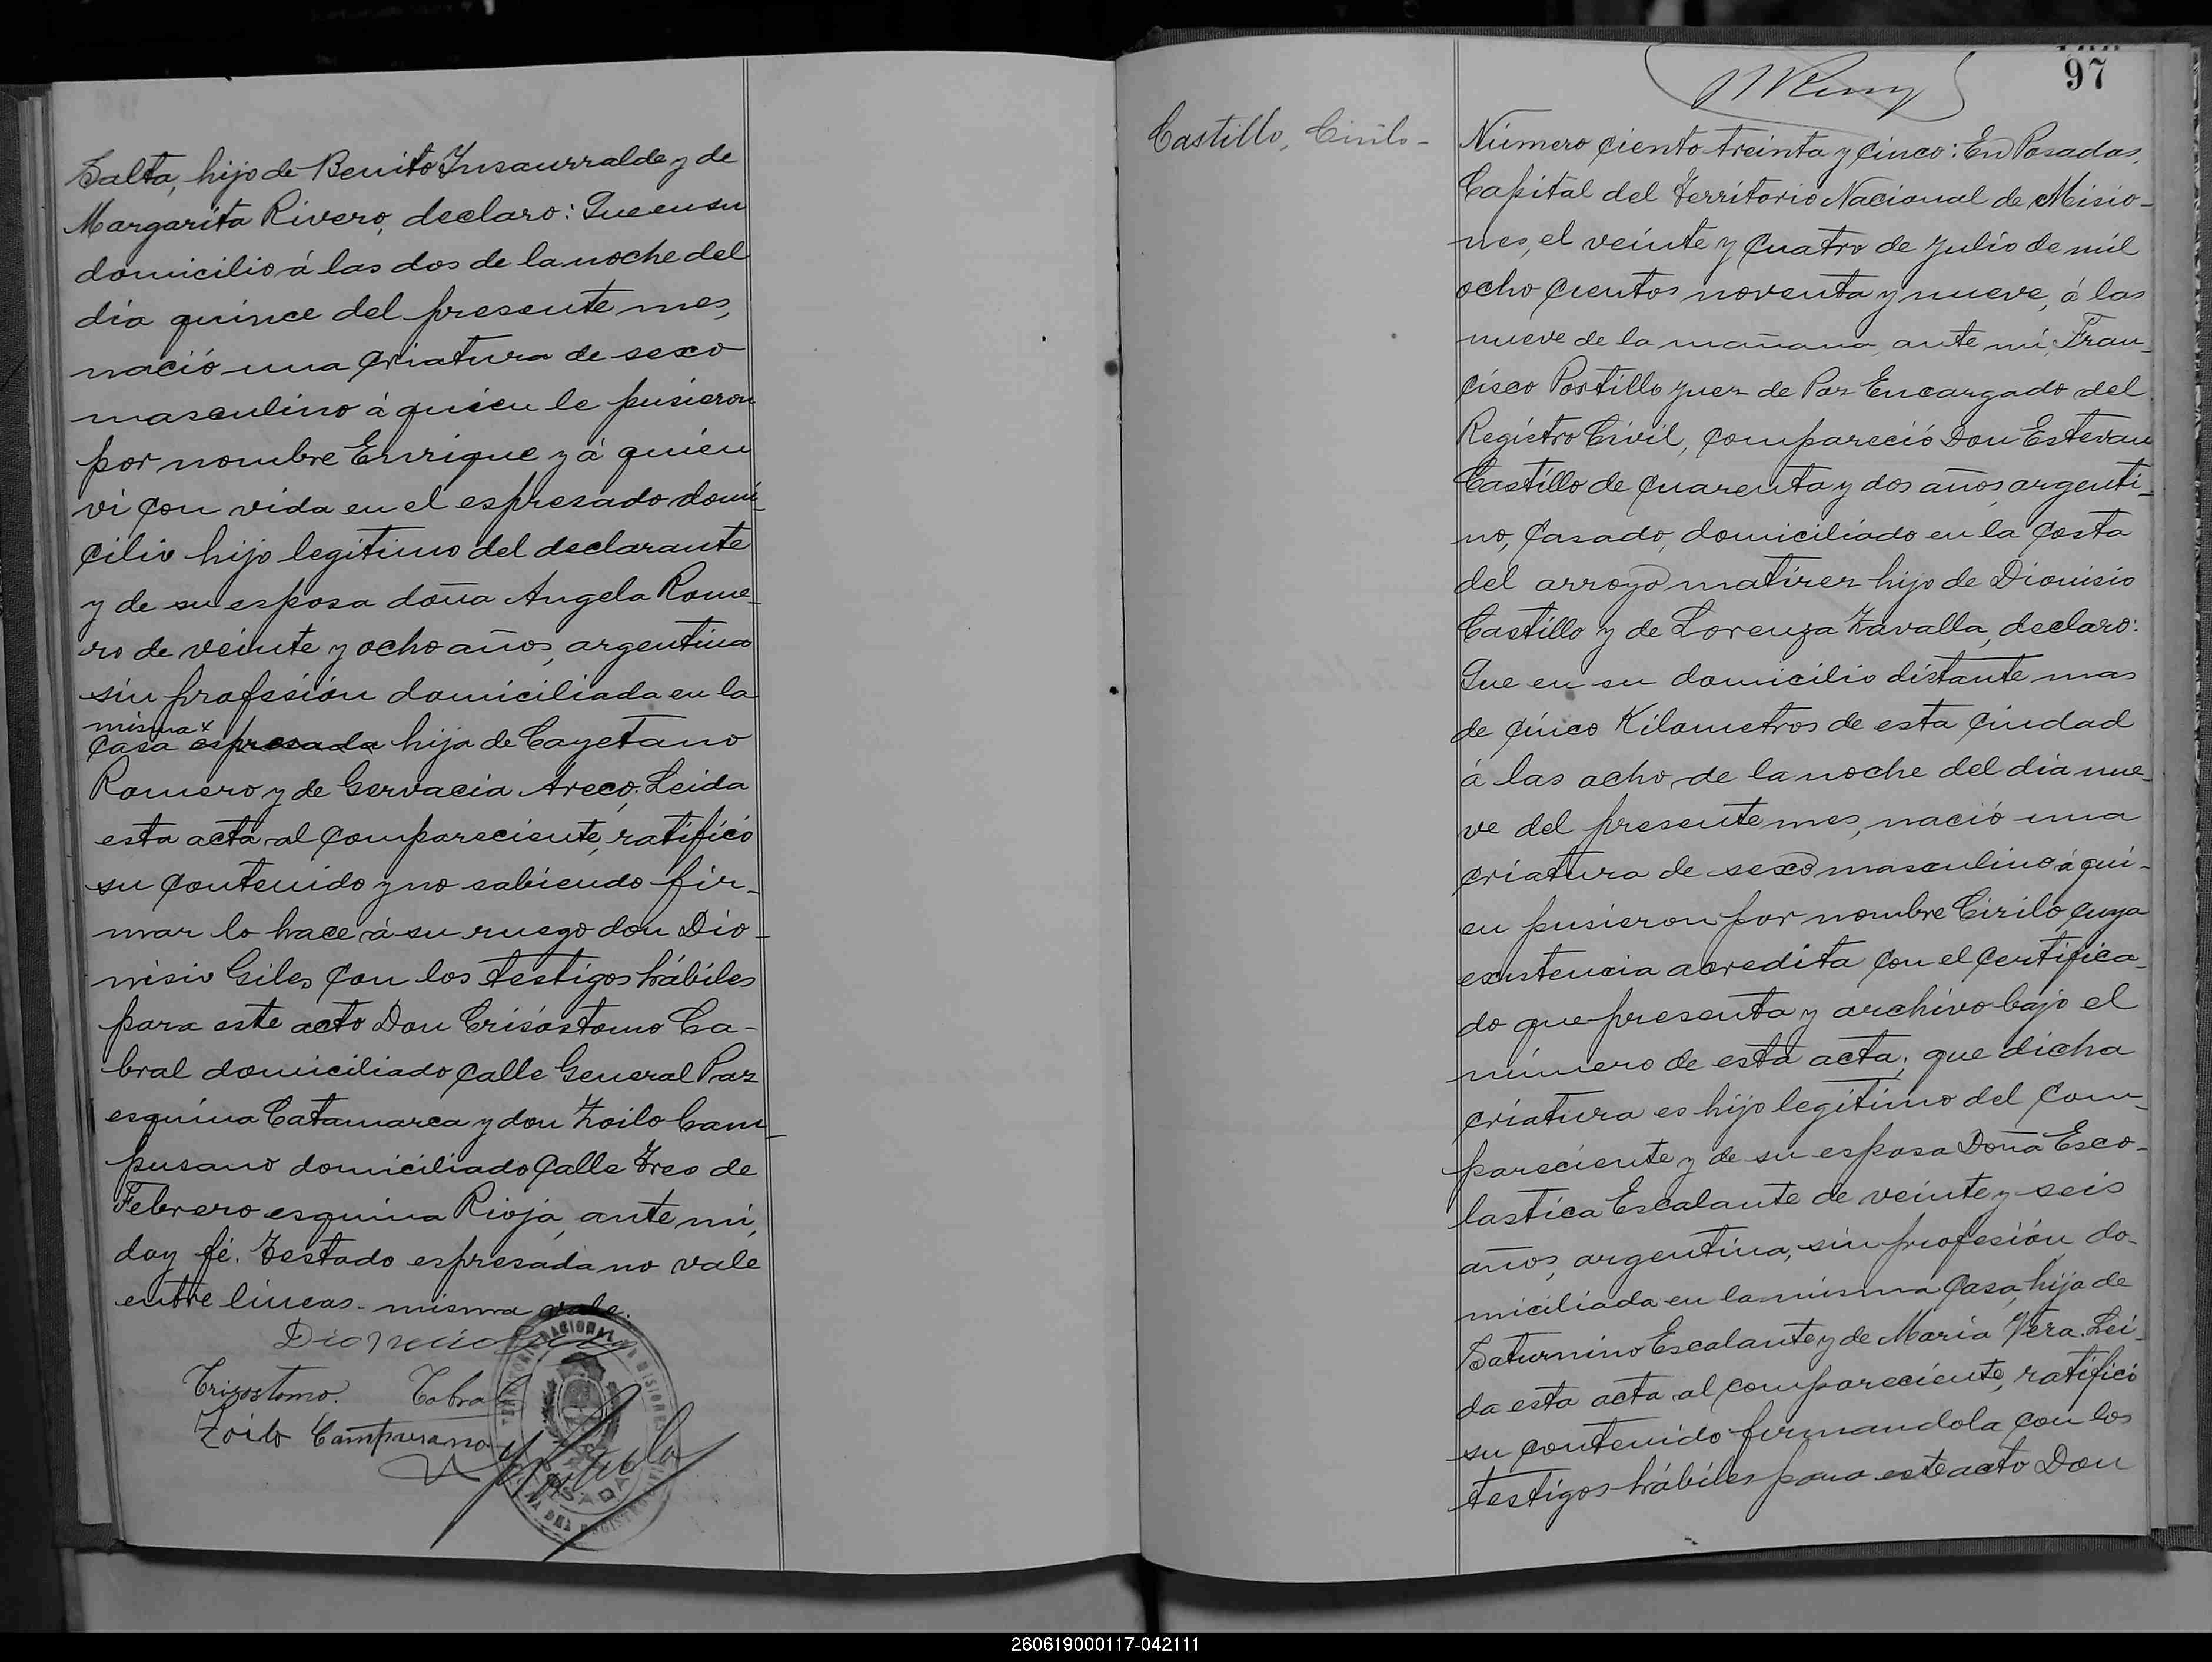 Salta, hijo de Benito Insaurralde y de
Margarita Rivero, declaro: Que en su
domicilio á las dos de la noche del
dia quince del presente mes,
nació una criatura de sexo
masculino á quien le pusieron
por nombre Enrique y á quien
vi con vida en el espresado domi-
cilio hijo legitimo del declarante
y de su esposa doña Angela Rome-
ro de veinte y ocho años, argentina
sin profesión domiciliada en la
misma x
casa espresada hija de Cayetano
Romero y de Gervacia Areco. Leida
esta acta al compareciente, ratificó
su contenido y no sabiendo fir-
mar lo hace á su ruego don Dio-
nisio Giles con los testigos hábiles
para este acto Don Crisóstomo Ca-
bral domiciliado calle General Paz
esquina Catamarca y don Zoilo Cam-
pusano domiciliado calle Tres de
Febrero esquina Rioja, ante mi,
doy fé. Testado espresada no vale
entre lineas - misma vale.
Crizostomo. Cabral
Zoilo Campusano
97
Castillo, Cirilo -
Número ciento treinta y cinco: En Posadas,
Capital del Territorio Nacional de Misio-
nes, el veinte y cuatro de Julio de mil
ocho cientos noventa y nueve, á las
nueve de la mañana, ante mi, Fran-
cisco Postillo Juez de Paz Encargado del
Registro Civil, compareció Don Estevan
Castillo de cuarenta y dos años argenti-
no, casado, domiciliado en la costa
del arroyo matirez hijo de Dionisio
Castillo y de Lorenza Zavalla, declaro:
Que en su domicilio distante mas
de cinco Kilometros de esta ciudad
á las ocho de la noche del dia nue-
ve del presente mes, nació una
criatura de sexo masculino á qui-
en pusieron por nombre Cirilo, cuya
existencia acredita con el certifica-
do que presenta y archivo bajo el
número de esta acta; que dicha
criatura es hijo legitimo del com-
pareciente y de su esposa Doña Esco-
lastica Escalante de veinte y seis
años, argentina, sin profesión do-
miciliada en la misma casa, hija de
Saturnino Escalante y de Maria Vera. Lei-
da esta acta al compareciente, ratificó
su contenido firmandola con los
testigos hábiles para este acto Don
260619000117-042111